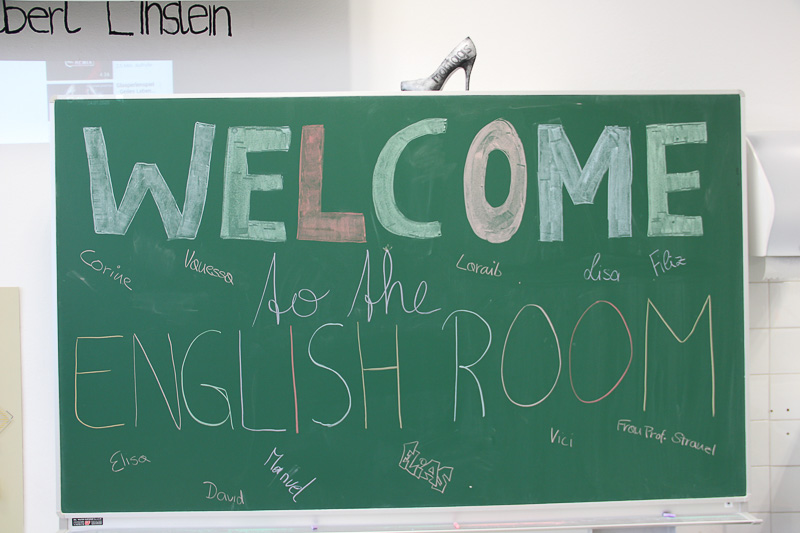 bert Einstein
WELCOME
Corine Vanessa Laraib Lisa Filiz
to the
ENGLISH ROOM
Elisa David Manuel ELIAS Vici Frau Prof. Strauel